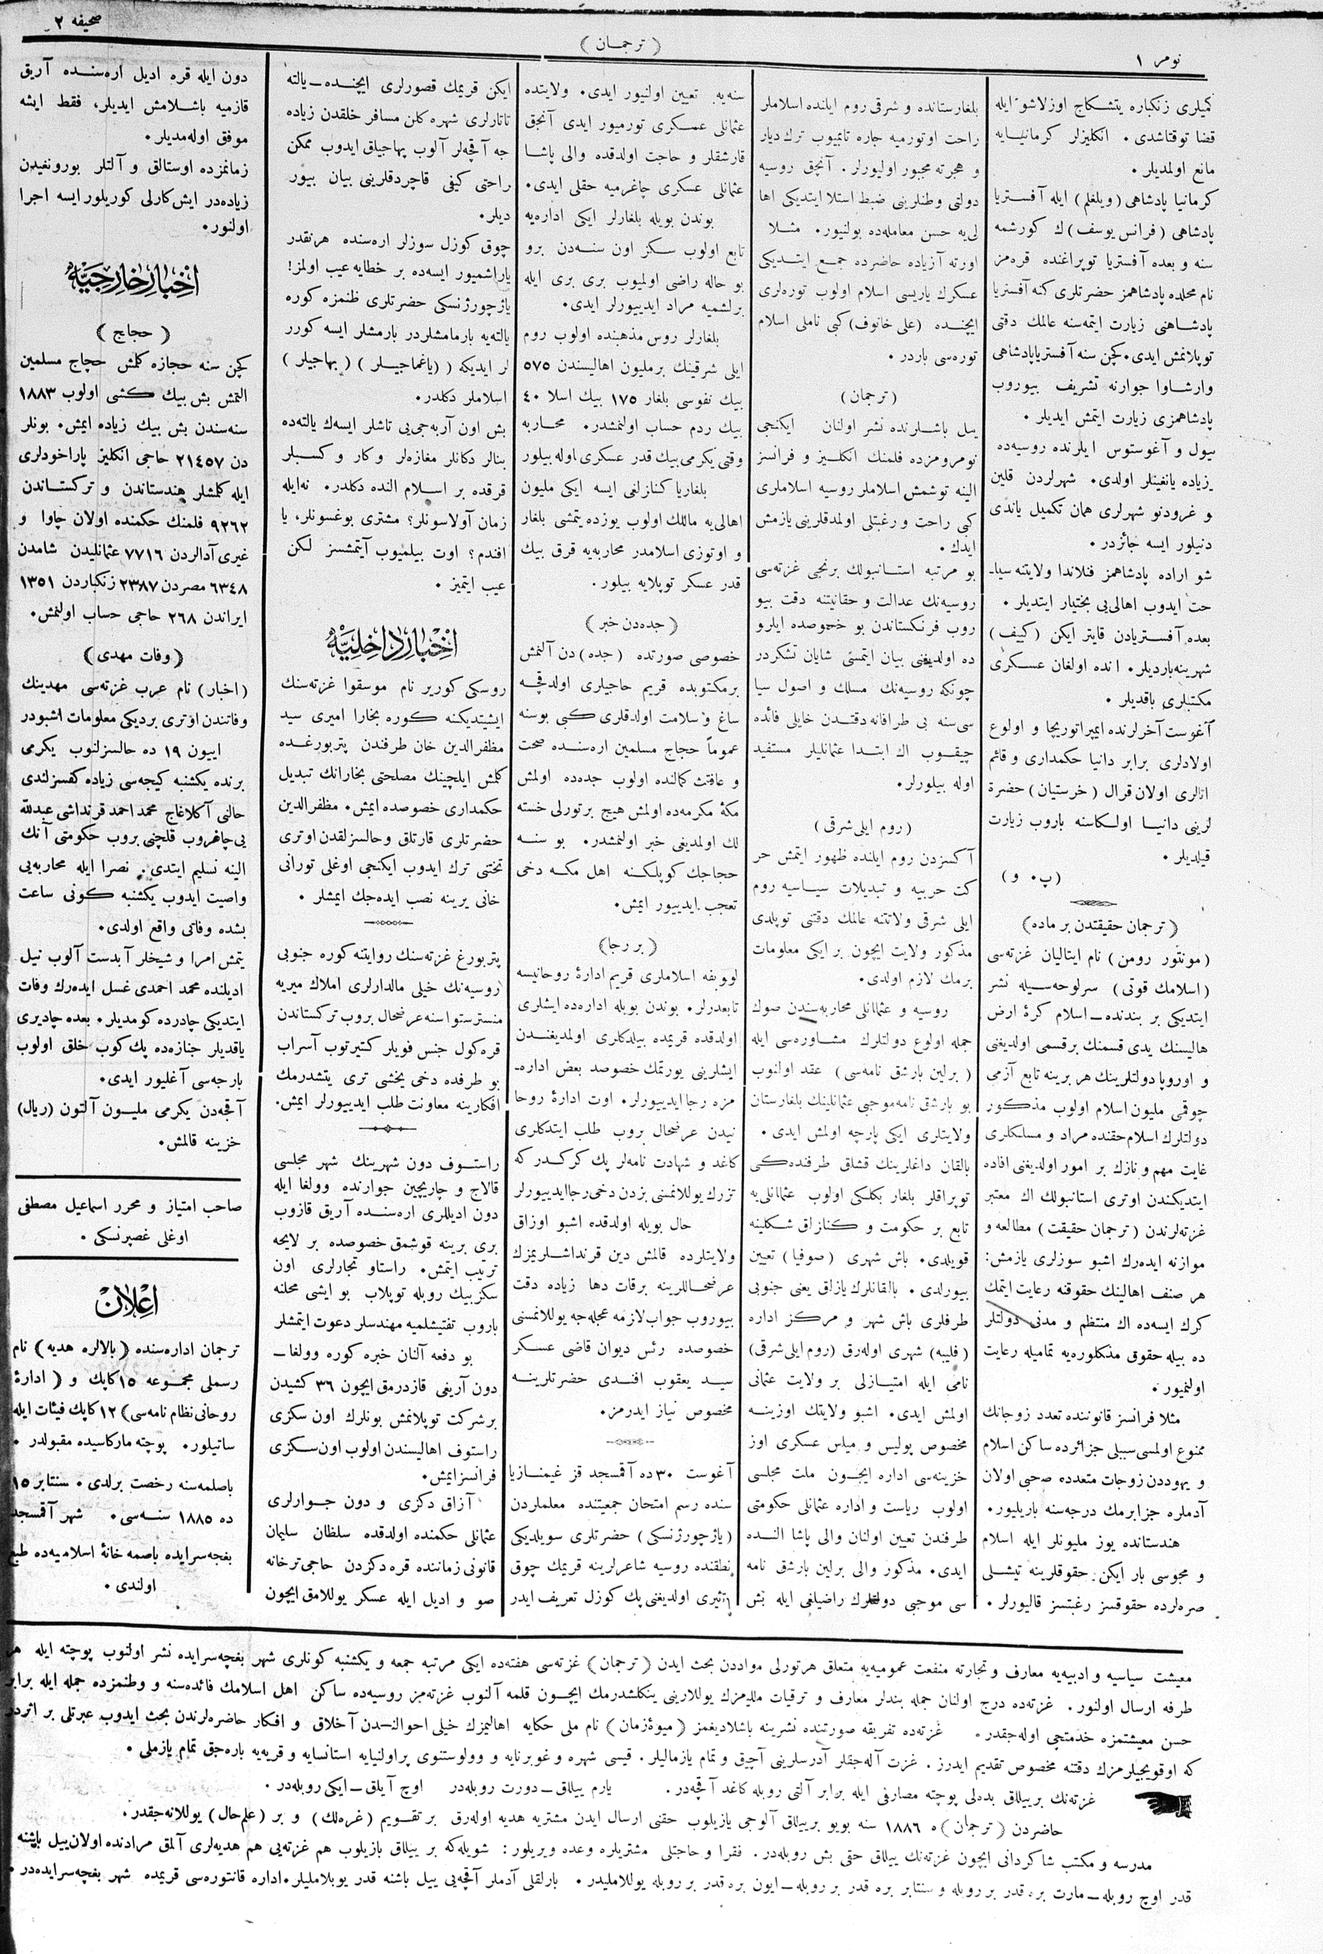 نومر ۱
( ترجمان )
صحیفه ۲
کمیلری زنکباره یتشکاج اوزلاشو ایله
قضا توقتاشدی. انکلیزلر کرمانیایه
مانع اولمدیلر.
کرمانیا پادشاهی (ویلغلم) ایله آفستریا
پادشاهی (فرانس یوسف)ك کورشمه
سنه و بعده آفستریا توپراغنده قره‌مز
نام محلده پادشاهمز حضرتلری کنه آفستریا
پادشاهنی زیارت ایتمه‌سنه عالمك دقتی
توپلانمش ایدی. کچن سنه آفستریا پادشاهی
وارشاوا جوارنه تشریف بیوروب
پادشاهمزی زیارت ایتمش ایدیلر.
ییول و آغوستوس ایلرنده روسیه‌ده
زیاده یانغینلر اولدی. شهرلردن قلین
و غرودنو شهرلری همان تکمیل یاندی
دنیلور ایسه جائزدر.
شو اراده پادشاهمز فنلاندا ولایتنه سیا-
حت ایدوب اهالی‌یی بختیار ایتدیلر.
بعده آفستریادن قایتر ایکن (کییف)
شهرینه باردیلر. انده اولغان عسکری
مکتبلری باقدیلر.
آغوست آخرلرنده ایمپراتوریچا و اولوغ
اولادلری برابر دانیا حکمداری و قائم
اتالری اولان قرال (خرستیان) حضرة
لرینی دانیا اولکاسنه باروب زیارت
قیلدیلر.
(پ. و)
(ترجمان حقیقتدن بر ماده)
(مونتور رومن) نام ایتالیان غزته‌سی
(اسلامك قوتی) سرلوحه‌سیله نشر
ایتدیکی بر بندنده - اسلام کرۀ ارض
هالیسنك یدی قسمنك برقسمی اولدیغنی
و اوروپا دولتلرینك هر برینه تابع آزمی
چوقمی ملیون اسلام اولوب مذکور
دولتلرك اسلام حقنده مراد و مسلکلری
غایت مهم و نازك بر امور اولدیغنی افاده
ایتدیکندن اوتری استانبولك اك معتبر
غزته‌لرندن (ترجمان حقیقت) مطالعه و
موازنه ایده‌رك اشبو سوزلری یازمش:
هر صنف اهالینك حقوقنه رعایت ایتمك
کرك ایسه‌ده اك منتظم و مدنی دولتلر
ده بیله حقوق مذکلوره‌یه تمامیله رعایت
اولنمیور.
مثلا فرانسز قانوننده تعدد زوجاتك
ممنوع اولمسی سببلی جزائرده ساکن اسلام
و یهوددن زوجات متعدده صحبی اولان
آدملره جزا برمك درجه‌سنه باریلیور.
هندستانده یوز ملیونلر ایله اسلام
و مجوسی بار ایکن حقوقلرینه تیشلی
صره‌لرده حقوقسز رغبتسز قالیورلر.
بلغارستانده و شرقی روم ایلنده اسلاملر
راحت اوتورمیه جاره تاپمیوب ترك دیار
و هجرته مجبور اولیورلر. آنجق روسیه
دولتی وطنلرینی ضبط استلا ایتدیکی اها
لی‌یه حسن معامله‌ده بولنیور. مثلا
اورته آزیاده حاضرده جمع ایتدیکی
عسکرك یاریسی اسلام اولوب توره‌لری
ایچنده (علی خانوف) کبی ناملی اسلام
توره‌سی باردر.
(ترجمان)
ییل باشلرنده نشر اولنان ایکنجی
نومرومزده فلمنك انکلیز و فرانسز
الینه توشمش اسلاملر روسیه اسلاملری
کبی راحت و رغبتلی اولمدقلرینی یازمش
ایدك.
بو مرتبه استانبولك برنجی غزته‌سی
روسیه‌نك عدالت و حقانیتنه دقت بیو
روب فرنکستاندن بو خصوصده ایلرو
ده اولدیغنی بیان ایتمسی شایان تشکردر
چونکه روسیه‌نك مسلك و اصول سیا
سی‌سنه بی طرفانه دقتدن خایلی فائده
چیقوب اك ابتدا عثمانلیلر مستفید
اوله بیلورلر.
(روم ایلی شرقی)
آکسزدن روم ایلنده ظهور ایتمش حر
کت حربیه و تبدیلات سیاسیه روم
ایلی شرقی ولاتنه عالمك دقتنی توپلدی
مذکور ولایت ایچون بر ایکی معلومات
برمك لازم اولدی.
روسیه و عثمانلی محاربه‌سندن صوك
جمله اولوغ دولتلرك مشاوره‌سی ایله
( برلین بارشق نامه‌سی) عقد اولنوب
بو بارشق نامه موجبی عثمانلینك بلغارستان
ولایتلری ایکی پارچه اولمش ایدی.
بالقان داغلرینك قشلق طرفنده‌کی
توپراقلر بلغار بکلکی اولوب عثمانلی‌یه
تابع بر حکومت و کنازلق شکلینه
قویلدی. باش شهری (صوفیا) تعیین
بیورلدی. بالقانلرك یازلق یعنی جنوبی
طرفلری باش شهر و مرکز اداره
(فلیبه) شهری اوله‌رق (روم ایلی شرقی)
نامی ایله امتیازلی بر ولایت عثمانی
اولمش ایدی. اشبو ولایتك اوزینه
مخصوص پولیس و میلس عسکری اوز
خزینه‌سی اداره ایچون ملت مجلسی
اولوب ریاست و اداره عثمانلی حکومتی
طرفندن تعیین اولنان والی پاشا النده
ایدی. مذکور والی برلین بارشق نامه
سی موجبی دولتلرك راضیلغی ایله بش
سنه‌یه تعیین اولنیور ایدی. ولایتده
عثمانلی عسکری تورمیور ایدی آنجق
قارشقلر و حاجت اولدقده والی پاشا
عثمانلی عسکری چاغرمیه حقلی ایدی.
بوندن بویله بلغارلر ایکی اداره‌یه
تابع اولوب سکز اون سنه‌دن برو
بو حاله راضی اولمیوب بری بری ایله
برلشمیه مراد ایدییورلر ایدی.
بلغارلر روس مذهبنده اولوب روم
ایلی شرقینك برملیون اهالیسندن ۵۷۵
بیك نفوسی بلغار ۱۷۵ بیك اسلا ۴۰
بیك ردم حساب اولنمشدر. محاربه
وقتی یکرمی بیك قدر عسکری اوله بیلور
بلغاریا کنازلغی ایسه ایکی ملیون
اهالی‌یه مالك اولوب یوزده یتمشی بلغار
و اوتوزی اسلامدر محاربه‌یه قرق بیك
قدر عسکر توپلایه بیلور.
(جده‌دن خبر)
خصوصی صورتده (جده) دن آلنمش
برمکتوبده قریم حاجیلری اولدقچه
ساغ و سلامت اولدقلری کبی بوسنه
عموماً حجاج مسلمین اره‌سنده صحت
و عافت کمالنده اولوب جده‌ده اولمش
مکۀ مکرمه‌ده اولمش هیچ برتورلی خسته
لك اولمدیغی خبر اولنمشدر. بو سنه
حجاجك کوپلکنه اهل مکه دخی
تعجب ایدییور ایمش.
(بر رجا)
لوویقه اسلاملری قریم ادارۀ روحانیسه
تابعدرلر. بوندن بویله اداره‌ده ایشلری
اولدقده قریمده بیلدکلری اولمدیغندن
ایشلرینی یورتمك خصوصد بعض اداره-
مزه رجا ایدییورلر. اوت ادارۀ روحا
نیدن عرضحال بروب طلب ایتدکلری
کاغد و شهادت نامه‌لر پك کرکدر که
تزرك یوللانمسنی بزدن دخی رجا ایدییورلر
حال بویله اولدقده اشبو اوزاق
ولایتلرده قالمش دین قرنداشلریمزك
عرضحاللرینه برقات دها زیاده دقت
بیوروب جواب لازمه عجله‌جه یوللانمسنی
خصوصده رئس دیوان قاضی عسکر
سید یعقوب افندی حضرتلرینه
مخصوص نیاز ایدرمز.
آغوست ۳۰ ده آقمسجد قز غیمنازیا
سنده رسم امتحان جمعیتنده معلملردن
(یازجورژنسکی) حضرتلری سویلدیکی
نطقنده روسیه شاعرلرینه قریمك چوق
تأثیری اولدیغنی پك کوزل تعریف ایدر
ایکن قریمك قصورلری ایچنده - یالته
تاتارلری شهره کلن مسافر خلقدن زیاده
جه آقچه‌لر آلوب پهاجیاق ایدوب ممکن
راحتی کیفی قاچردقلرینی بیان بیور
دیلر.
چوق کوزل سوزلر اره‌سنده هرنقدر
یاراشمیور ایسه‌ده بر خطایه عیب اولمز!
یازجورژنسکی حضرتلری ظنمزه کوره
یالته‌یه بارمامشلردر بارمشلر ایسه کورر
لر ایدیکه ( (یاغماجیلر) (بهاجیلر)
اسلاملر دکلدر.
بش اون آربه‌جی‌یی تاشلر ایسه‌ك یالته‌ده
بنالر دکانلر مغازه‌لر و کار و کسبلر
قرقده بر اسلام النده دکلدر. نه ایله
زمان آولاسونلر؟ مشتری بوغسونلر، یا
افندم؟ اوت بیلمیوب آیتمشسز لکن
عیب ایتمیز.
اخبار داخلیه
روسکی کوریر نام موسقوا غزته‌سنك
ایشتدیکنه کوره بخارا امیری سید
مظفرالدین خان طرفندن پتربورغده
کلمش ایلچینك مصلحتی بخارانك تبدیل
حکمداری خصوصده ایمش. مظفرالدین
حضرتلری قارتلق و حالسزلقدن اوتری
تختنی ترك ایدوب ایکنجی اوغلی تورانی
خانی یرینه نصب ایده‌جك ایمشلر.
پتربورغ غزته‌سنك روایتنه کوره جنوبی
روسیه‌نك خیلی مالدارلری املاك میریه
منسترستواسنه عرضحال بروب ترکستاندن
قره‌کول جنس قویلر کتیرتوب آسراب
بو طرفده دخی بخشی تری یتشدرمك
افکارینه معاونت طلب ایدییورلر ایمش.
راستوف دون شهرینك شهر مجلسی
قالاج و چاریچین جوارنده وولغا ایله
دون ادیللری اره‌سنده آریق قازوب
بری برینه قوشمق خصوصده بر لایحه
ترتیب ایتمش. راستاو تجارلری اون
سکز بیك روبله توپلاب بو ایشی محلنه
باروب تفتیشلمیه مهندسلر دعوت ایتمشلر
بو دفعه آلنان خبره کوره وولغا-
دون آریغی قازدرمق ایچون ۳۶ کشیدن
برشرکت توپلانمش بونلرك اون سکزی
راستوف اهالیسندن اولوب اون سکزی
فرانسز ایمش.
آزاق دکزی و دون جوارلری
عثمانلی حکمنده اولدقده سلطان سلیمان
قانونی زماننده قره دکزدن حاجی ترخانه
صو و ادیل ایله عسکر یوللامق ایچون
دون ایله قره ادیل اره‌سنده آریق
قازمیه باشلامش ایدیلر، فقط ایشه
موفق اوله‌مدیلر.
زمانمزده اوستالق و آلتلر بورونغیدن
زیاده‌در ایش کارلی کوریلور ایسه اجرا
اولنور.
اخبار خارجیه
(حجاج)
کچن سنه حجازه کلمش حجاج مسلمین
التمش بش بیك کشی اولوب ۱۸۸۳
سنه‌سندن بش بیك زیاده ایمش. بونلر
دن ۲۱۴۵۷ حاجی انکلیز پاراخودلری
ایله کلمشلر هندستاندن و ترکستاندن
۹۲۶۲ فلمنك حکمنده اولان جاوا و
غیری آدالردن ۷۷۱۶ عثمانلیدن شامدن
۶۳۴۸ مصردن ۲۳۸۷ زنکباردن ۱۳۵۱
ایراندن ۲۶۸ حاجی حساب اولنمش.
(وفات مهدی)
(اخبار) نام عرب غزته‌سی مهدینك
وفاتندن اوتری بردیکی معلومات اشبودر
اییون ۱۹ ده حالسزلنوب یکرمی
برنده یکشنبه کیجه‌سی زیاده کفسزلندی
حالنی آکلاغاج محمد احمد قرنداشی عبدالله
یی چاهروب قلچنی بروب حکومتی آنك
الینه تسلیم ایتدی. نصرا ایله محاربه‌یی
واصیت ایدوب یکشنبه کونی ساعت
بشده وفاتی واقع اولدی.
یتمش امرا و شیخلر آبدست آلوب نیل
ادیلنده محمد احمدی غسل ایده‌رك وفات
ایتدیکی چادرده کومدیلر. بعده چادیری
یاقدیلر جنازه‌ده پك کوب خلق اولوب
بارجه‌سی آغلیور ایدی.
آقچه‌دن یکرمی ملیون آلتون (ریال)
خزینه قالمش.
صاحب امتیاز و محرر اسماعیل مصطفی
اوغلی غصپرنسکی.
اعلان
ترجمان اداره‌سنده (بالالره هدیه) نام
رسملی مجموعه ۱۵ کاپك و (ادارۀ
روحانی نظام نامه‌سی) ۱۲ کاپك فیئات ایله
ساتیلور. پوچته مارکاسیده مقبولدر.
باصلمه‌سنه رخصت برلدی. سنتابر ۱۵
ده ۱۸۸۵ سنه‌سی. شهر آقمسجد
بغچه‌سرایده باصمه خانۀ اسلامیه‌ده طبع
اولندی.
معیشت سیاسیه و ادبیه‌یه معارف و تجارته منفعت عمومیه‌یه متعلق هرتورلی موادن بحث ایدن (ترجمان) غزته‌سی هفته‌ده ایکی مرتبه جمعه و یکشنبه کونلری شهر بغچه‌سرایده نشر اولنوب پوچته ایله هر
طرفه ارسال اولنور. غزته‌ده درج اولنان جمله بندلر معارف و ترقیات ملیه‌مزك یوللارینی ینکلشدرمك ایچون قلمه آلنوب غزته‌مز روسیه‌ده ساکن اهل اسلامك فائده‌سنه و وطنمزده جمله ایله برابر
حسن معیشتمزه خدمتجی اوله‌جقدر. غزته‌ده تفریقه صورتنده نشرینه باشلادیغمز (میوۀ زمان) نام ملی حکایه اهالیمزك خیلی احوالندن آخلاق و افکار حاضره‌لرندن بحث ایدوب عبرتلی بر اثردر
که اوقویجیلرمزك دقتنه مخصوص تقدیم ایدرز. غزت آله‌جقلر آدرسلرینی آچیق و تمام یازمالیلر. قیسی شهره و غوبرنایه و وولوستنوی پراولنیایه استانسایه و قریه‌یه باره‌جق تمام یازملی.
غزته‌نك بر ییللق بدلی پوچته مصارفی ایله برابر آلتی روبله کاغد آقچه‌در. یارم ییللق - دورت روبله‌در اوچ آیلق - ایکی روبله‌در.
حاضردن (ترجمان)ه ۱۸۸۶ سنه بویو بر ییللق آلوجی یازیلوب حقنی ارسال ایدن مشتریه هدیه اوله‌رق بر تقویم (غره‌لك) و بر (علم حال) یوللانه‌جقدر.
مدرسه و مکتب شاکردانی ایچون غزته‌نك ییللق حقی بش روبله‌در. فقرا و حاجتلی مشتریلره وعده ویریلور: شویله‌که بر ییللق یازیلوب هم غزته‌یی هم هدیه‌لری آلمق مرادنده اولان ییل باشنه
قدر اوچ روبله - مارت بره قدر بر روبله و سنتابر بره قدر بر روبله - ایون بره قدر بر روبله یوللاملیدر. بارلقلی آدملر آقچه‌یی ییل باشنه قدر یوبلاملیلر. اداره قانتوره‌سی قریمده شهر بغچه‌سرایده‌در.